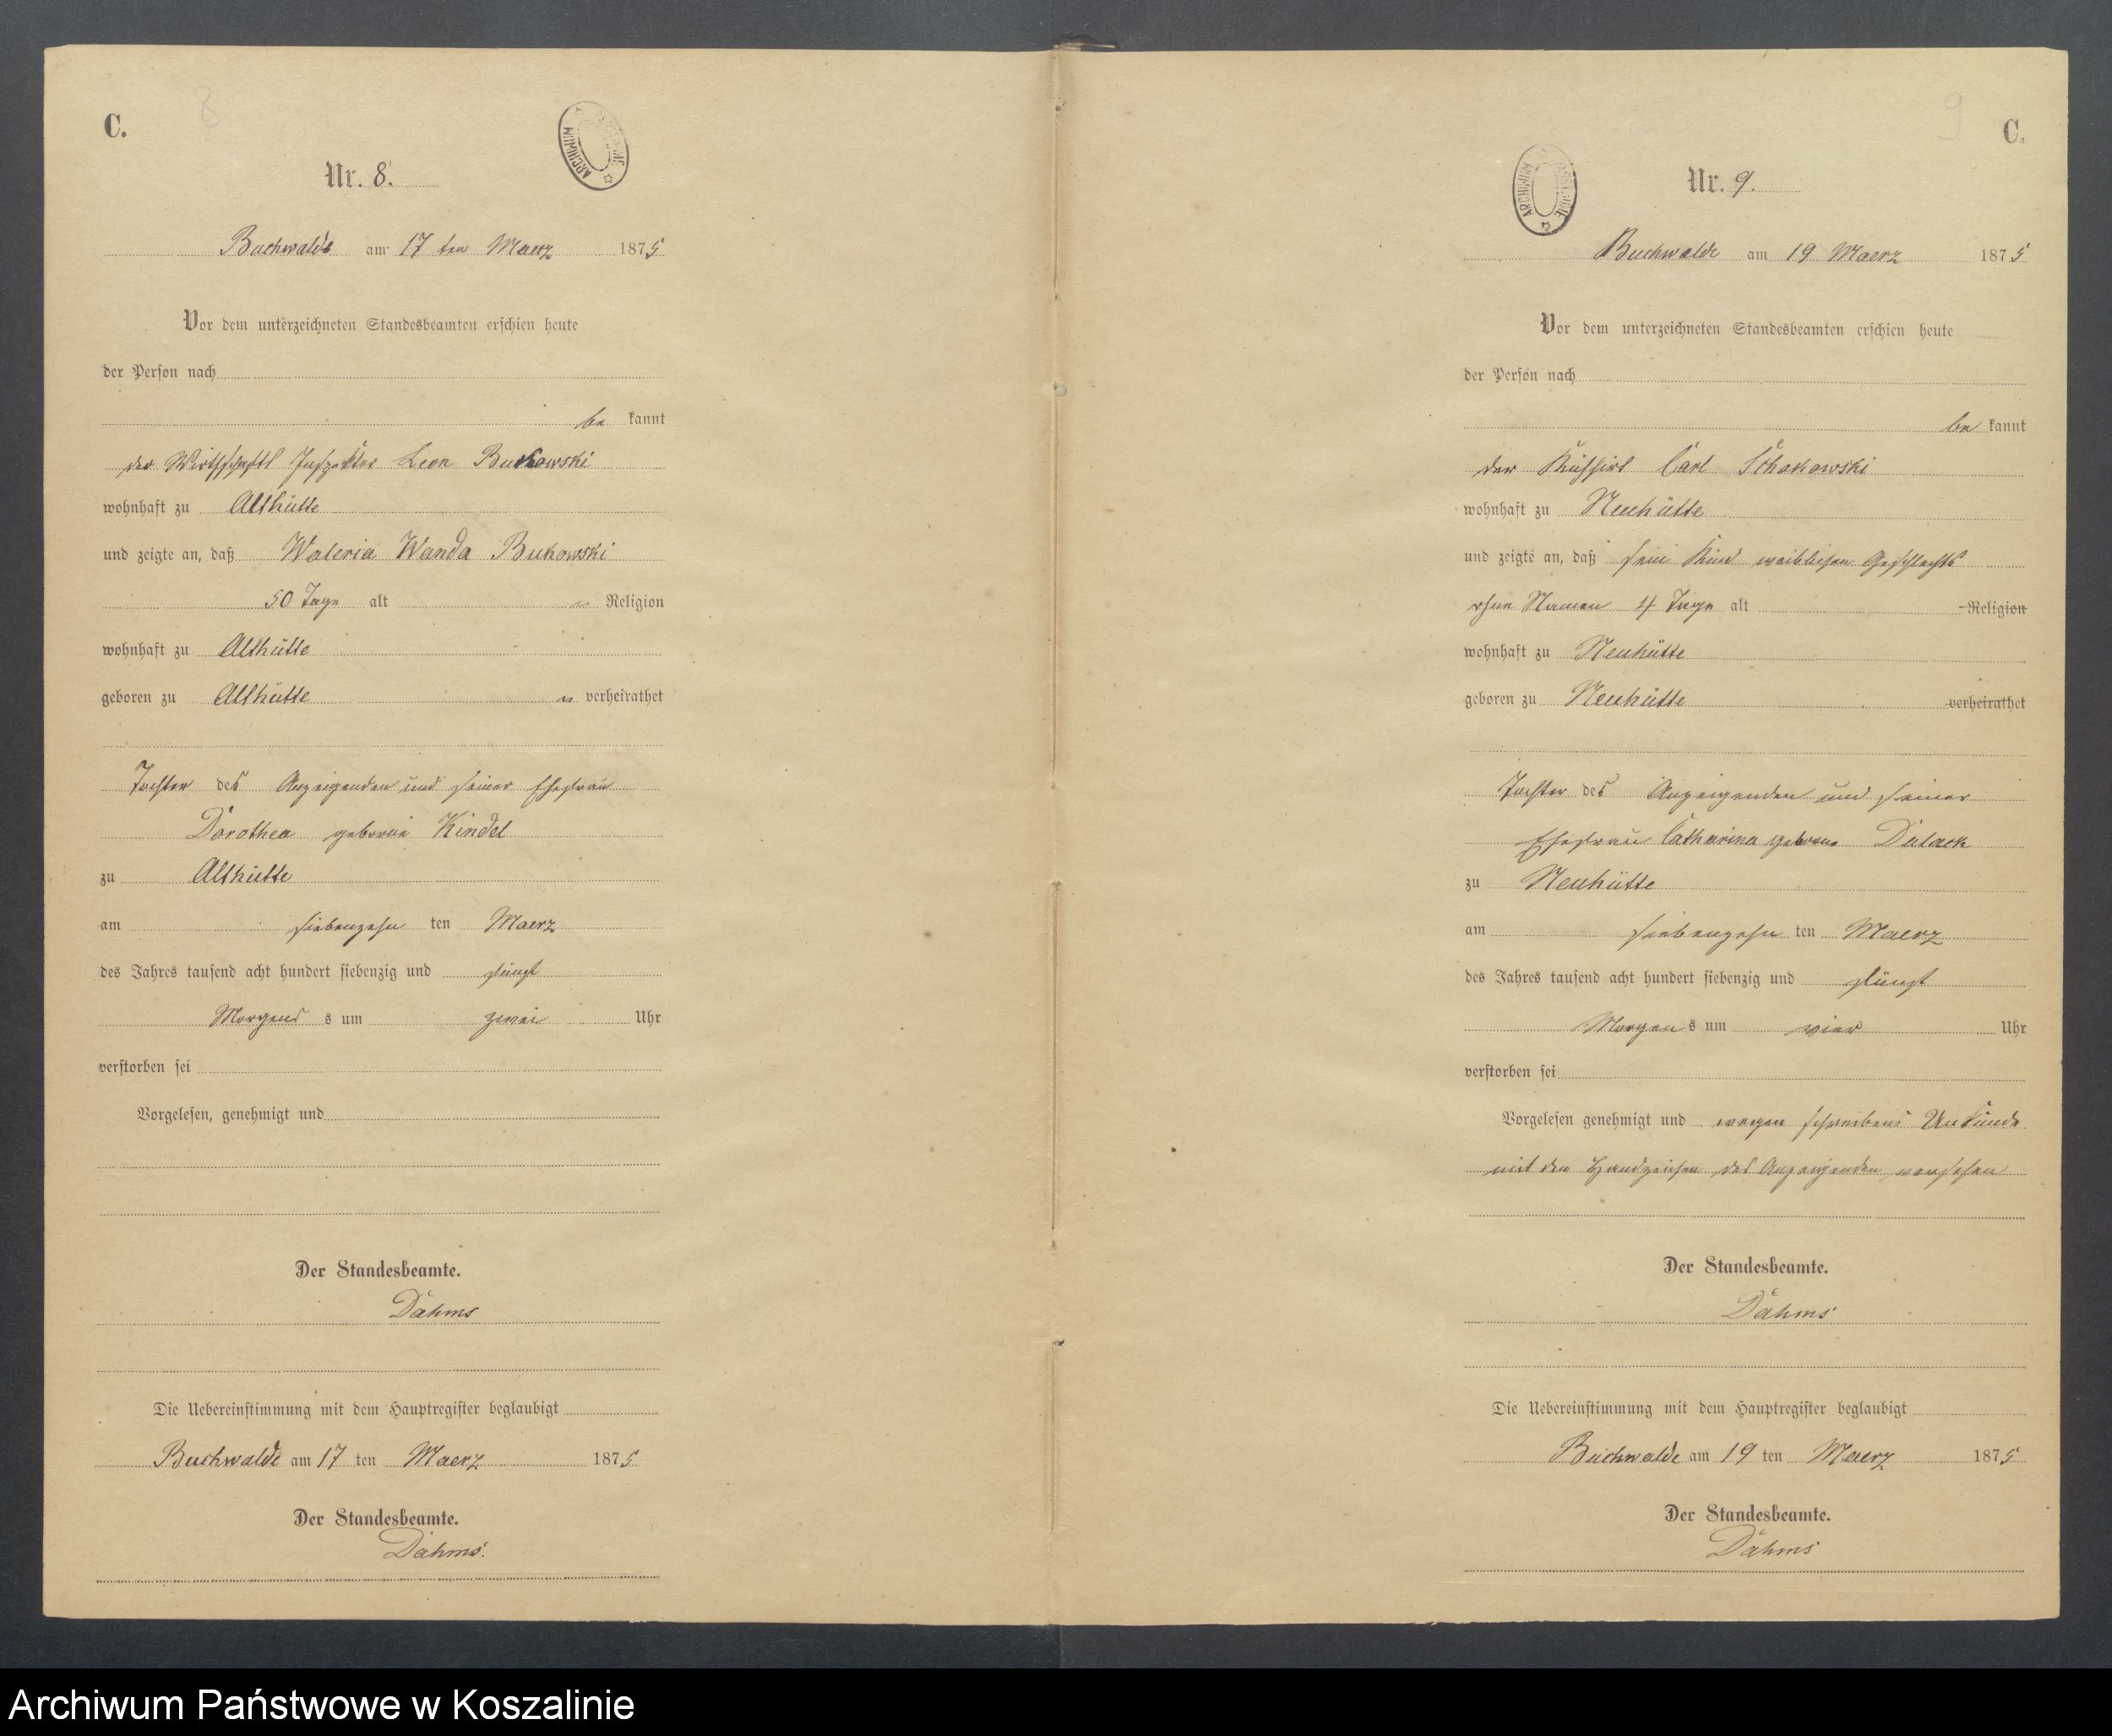 C.
8
Nr. 8.
Buchwalde am 17 ten Maerz 1875
Vor dem unterzeichneten Standesbeamten erschien heute
der Person nach
be kannt
der Wirthschafts Inspektor Leon Bukowski
wohnhaft zu Althütte
und zeigte an, daß Waleria Wanda Bukowski
50 Tage alt Religion
wohnhaft zu Althütte
geboren zu Althütte verheirathet
Tochter des Anzeigenden und seiner Ehefrau
Dorothea geborne Kindel
zu Althütte
am siebenzehn ten Maerz
des Jahres tausend acht hundert siebenzig und fünf
Morgens s um zwei Uhr
verstorben sei
Vorgelesen, genehmigt und
Der Standesbeamte.
Dahms
Die Uebereinstimmung mit dem Hauptregister beglaubigt
Buchwalde am 17 ten Maerz 1875
Der Standesbeamte.
Dahms.
9
C.
Nr. 9.
Buchwalde am 19 Maerz 1875
Vor dem unterzeichneten Standesbeamten erschien heute
der Person nach
be kannt
der Kuhhirt Carl
wohnhaft zu Neuhütte
und zeigte an, daß sein Kind weiblichen Geschlechts
ohne Namen 4 Tage alt Religion
wohnhaft zu Neuhütte
geboren zu Neuhütte verheirathet
Tochter des Anzeigenden und seiner
Ehefrau Catharina geborene
zu Neuhütte
am siebenzehn ten Maerz
des Jahres tausend acht hundert siebenzig und fünf
Morgen s um vier Uhr
verstorben sei
Vorgelesen genehmigt und wegen schreibens Unkunde
mit den Handzeichen des Anzeigenden versehen
Der Standesbeamte.
Dahms
Die Uebereinstimmung mit dem Hauptregister beglaubigt
Buchwalde am 19 ten Maerz 1875
Der Standesbeamte.
Dahms
Archiwum Państwowe w Koszalinie